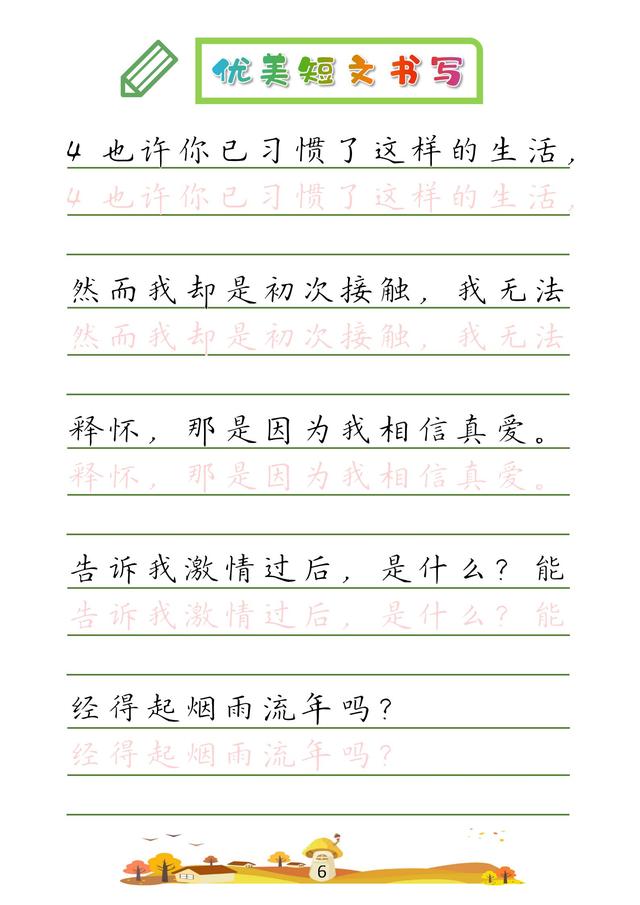 优美短文书写
4 也许你已习惯了这样的生活，
4 也许你已习惯了这样的生活，
然而我却是初次接触，我无法
然而我却是初次接触，我无法
释怀，那是因为我相信真爱。
释怀，那是因为我相信真爱。
告诉我激情过后，是什么？能
告诉我激情过后，是什么？能
经得起烟雨流年吗？
经得起烟雨流年吗？
6